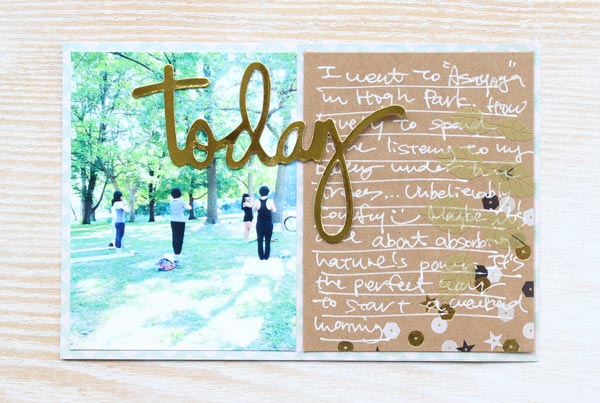 today
I went to "Asayoga"
in High Park. How
to spend
listening to my
body under
trees... Unbelievably
Maybe it's
about absorbing
nature's power. It's
the perfect
to start a weekend
morning.